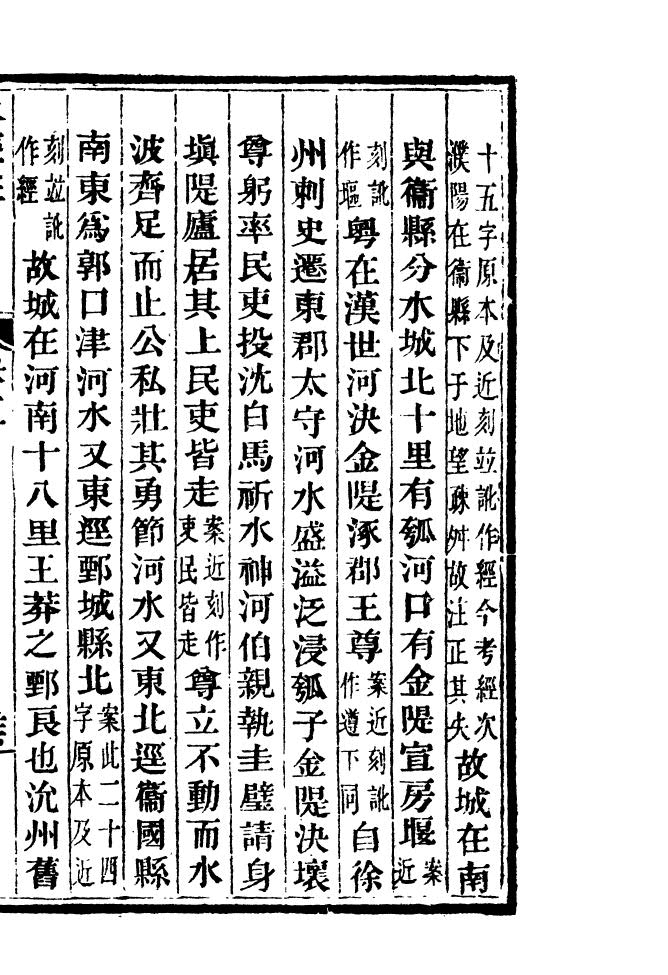 十五字原本及近刻並訛作經今考經次
濮陽在衞縣下于地望疎舛故注正其失故城在南
與衞縣分水城北十里有瓠河口有金隄宣房堰案近
刻訛作堰粵在漢世河決金隄涿郡王尊案近刻訛作遵下同自徐
州刺史遷東郡太守河水盛溢泛浸瓠子金隄決壞
尊躬率民吏投沈白馬祈水神河伯親執圭璧請身
塡隄廬居其上民吏皆走案近刻作吏民皆走尊立不動而水
波齊足而止公私壯其勇節河水又東北逕衞國縣
南東爲郭口津河水又東逕鄄城縣北案此二十四字原本及近
刻並訛作經故城在河南十八里王莽之鄄良也沇州舊